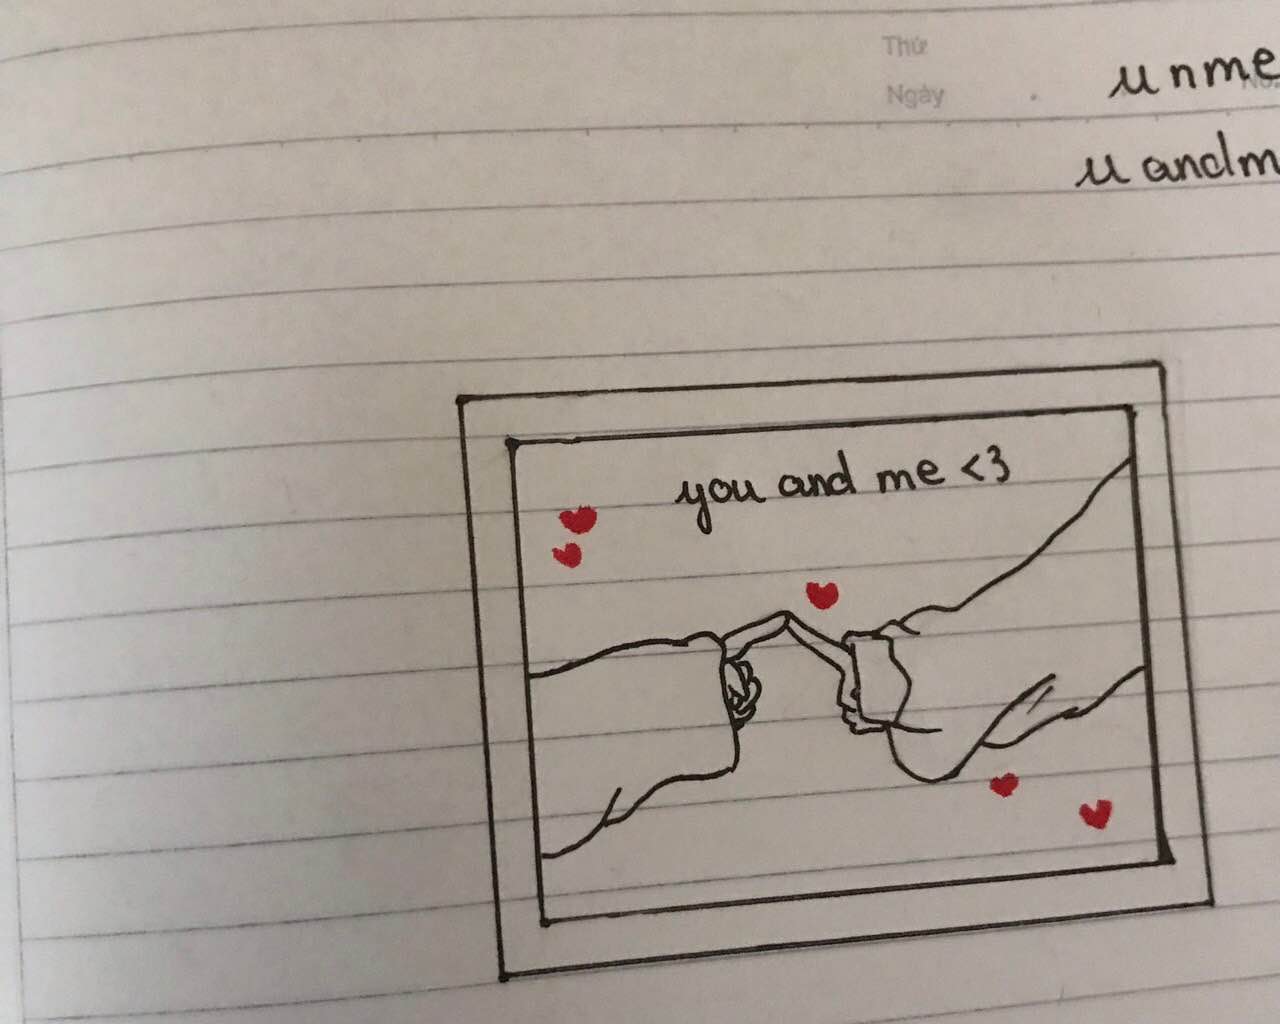 Thứ
Ngày
No.
u n me
u and m
you and me <3